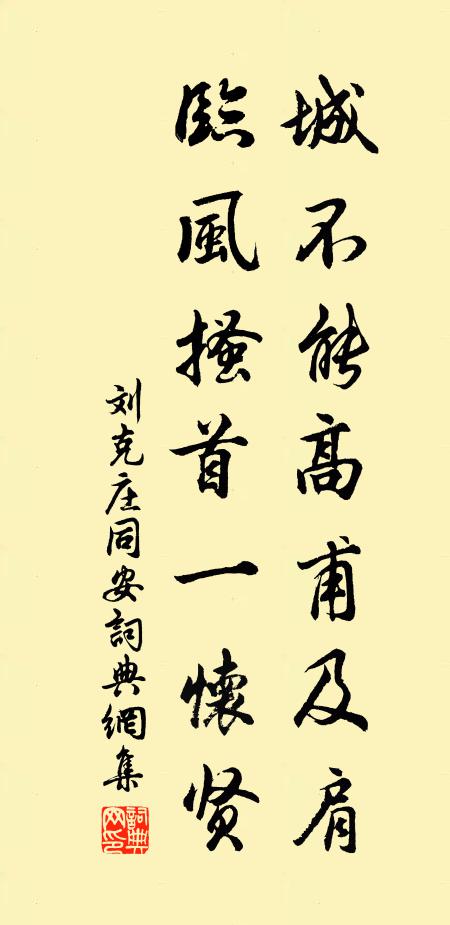 城不能高甫及肩
臨風搔首一懷贤
刘克庄同安詞典網集
詞典網印